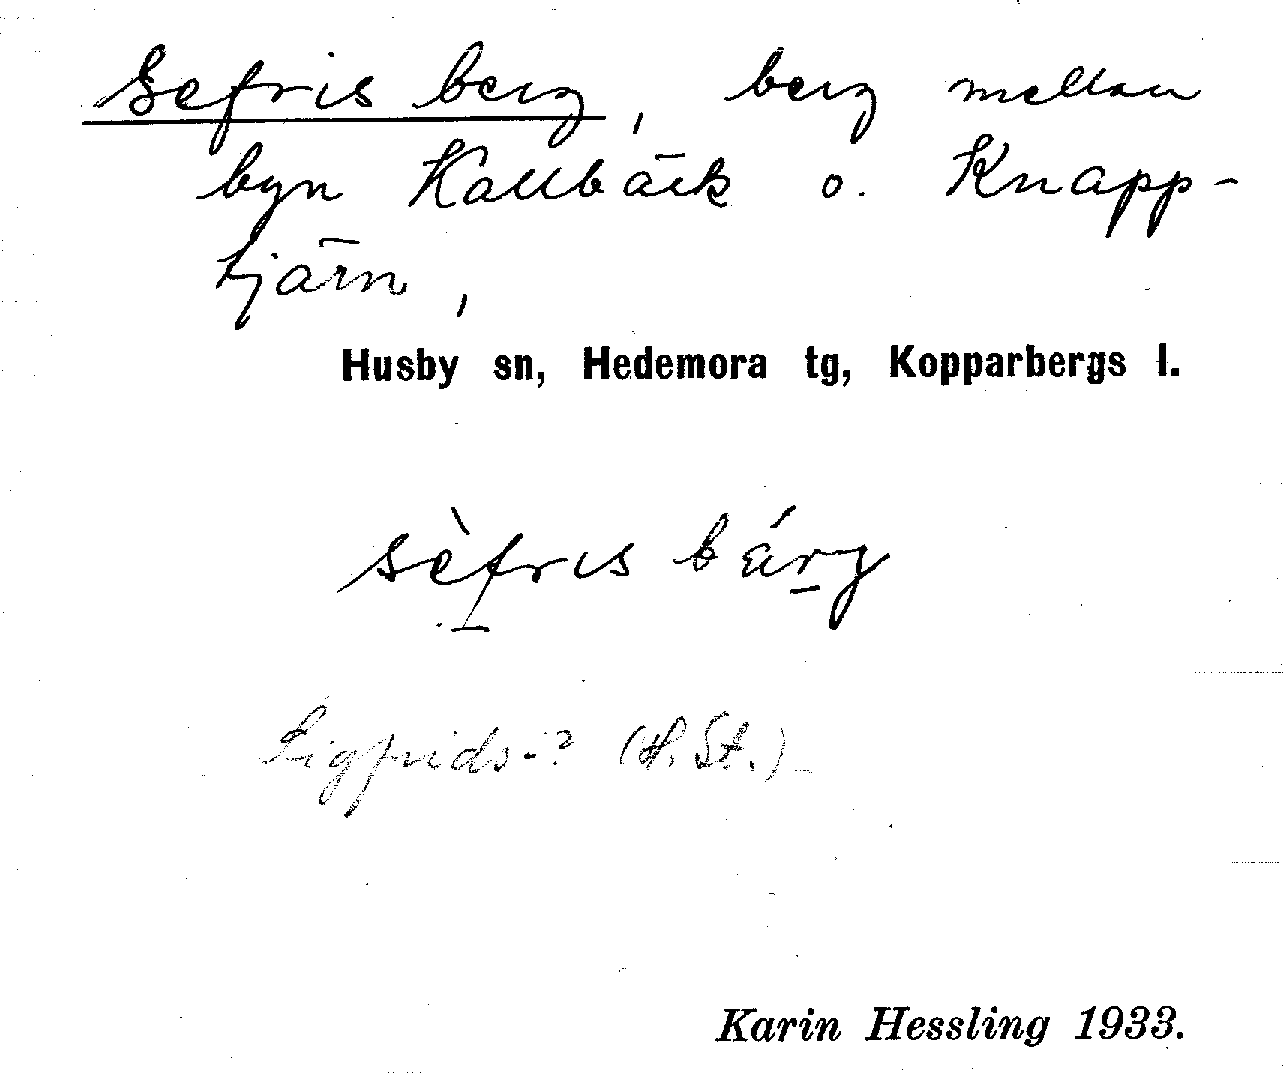 Sefris berg, berg mellan
byn Kallbäck o. Knapp-
tjärn,
Husby sn, Hedemora tg, Kopparbergs l.
sèfris bárg
Sigfrids-? (H. St.)
Karin Hessling 1933.